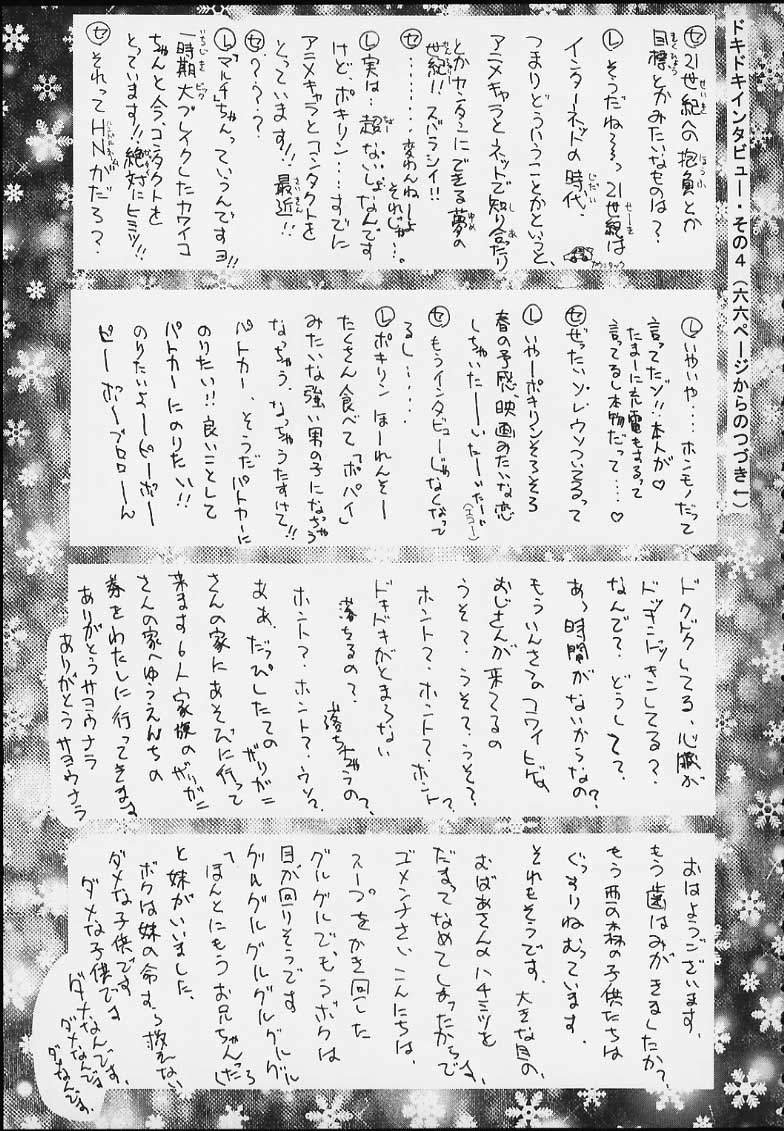 ドキドキインタビュー・その4（六六ページからのつづき↓）
セ 21世紀への抱負とか
目標とかみたいなものは？
レ そうだね〜〜っ 21世紀は
インターネットの時代、
つまりどういうことかというと、
アニメキャラとネットで知り合ったり
とかカンタンにできる夢の
世紀!! ズバラシイ!!
セ ………変わんねーよ
それじゃ…。
レ 実は…超ないしょなんです
けどポキリン…すでに
アニメキャラとコンタクトを
とっています!! 最近!!
セ ？？？
レ 「マルチ」ちゃんっていうんですョ!!
一時期大ブレイクしたカワイコ
ちゃんと今、コンタクトを
とっています!! 絶対にヒミツ!!
セ それってHNがだろ？
レ いやいや…ホンモノだって
言ってたゾ!! 本人が♡
たまーに充電もするって
言ってるし本物だって…♡
セ ぜったいソレウソついてるって
レ いやーポキリンそろそろ
春の予感、映画みたいな恋
しちゃいたーいたーいたーい
(エコー)
セ もうインタビューじゃなくなって
るし……
レ ポキリン ほーれんそー
たくさん食べて「ポパイ」
みたいな強い男の子になっちゃう
なっちゃう、なっちゃうたすけて!!
パトカー、そうだパトカーに
のりたい!! 良いことして
パトカーにのりたい!!
のりたいよーピーポー
ピーポーブロローん
ドクドクしてる、心臓が
ドッキンドッキンしてる？
なんで？どうして？
あっ時間がないからなの？
もういんさつのコワイヒゲ
おじさんが来てるの
うそ？うそ？うそ？
ホント？ホント？ホント？
ドキドキがとまらない
落ちるの？落ちちゃうの？
ホント？ホント？ウソ？
ああ、だっぴしたてのザリガニ
さんの家にあそびに行って
来ます6人家族のザリガニ
さんの家へゆうえんちの
券をわたしに行ってきます
ありがとうサヨウナラ
ありがとうサヨウナラ
おはようございます、
もう歯はみがきましたか？
もう西の森の子供たちは
ぐっすりねむっています、
それもそうです、大きな目の、
おばあさんのハチミツを
だまってなめてしまったからです、
ゴメンナさい、こんにちは、
スープをかき回した
グルグルでもうボクは
目が回りそうです
グルグルグルグルグルグル
「ほんとにもうお兄ちゃんったら」
と妹がいいました、
ボクは妹の命すら救えない
ダメな子供です
ダメな子供です
ダメなんです、
ダメなんです
ダメなんです、